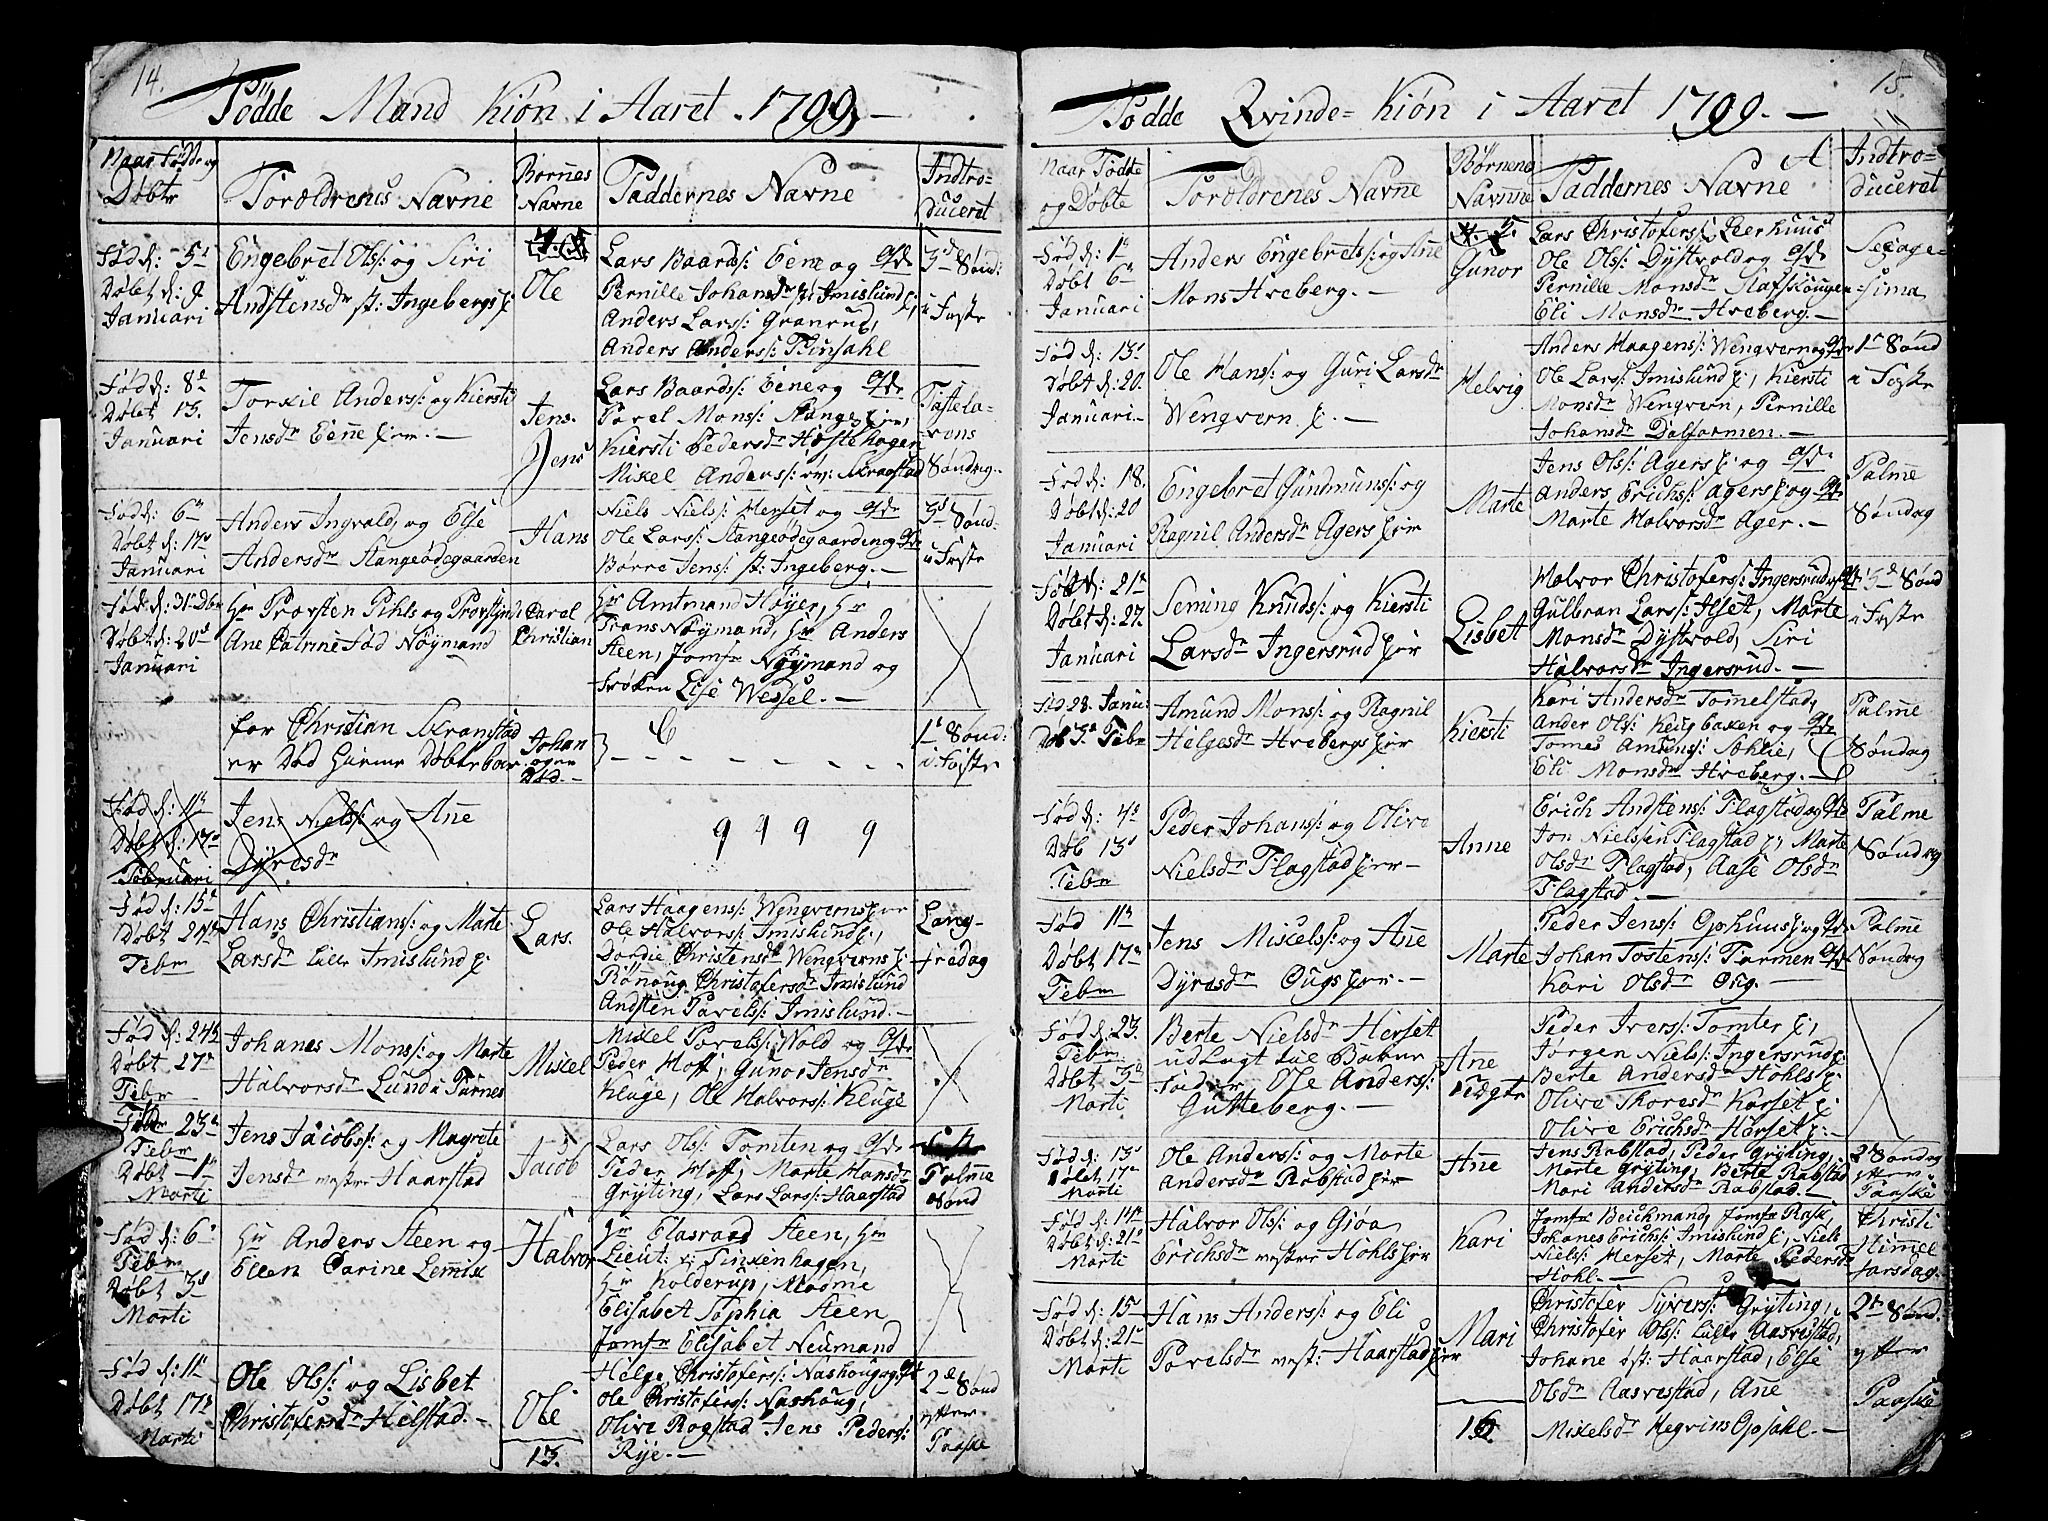 14.
Födde Mand Kiön i Aaret 1799. —
Naar Fødde og
Døbte
Forældrenes Navne
Børnes
Navne
Faddernes Navne
Indtro=
duceret
Fød d: 5te
Døbt d: 9
Januari
Engebret Ols: og Siri
Andstensdr st: Ingebergs
Ole
Lars Baards: Eene og
Pernille Johansdr Imislund
Anders Lars: Granrud,
Anders Anders: Finsahl
3de Sønd:
i Faste
Fød d: 8de
Døbt 13.
Januari
Torkil Anders: og Kiersti
Jensdr Eenne
Jens.
Jens
Lars Baards: Eene og
Povel Mons: Stange
Kiersti Pedersdr Hoftshagen
Mikel Anders: Skragstad
Fastela=
vens
Søndag.
Fød d: 6te
Døbt d: 17de
Januari
Anders Ingvald, og Else
Andersdr Stangeødegaarden
Hans
Niels Niels: Herset og
Ole Lars: Stangeødegaarden og
Børre Jens: st: Ingeberg. —
3de Sønd:
i Faste
Fød d: 31te Dbr
Døbt d: 20de
Januari
Hr Provsten Pihls og Provstinde
Ane Catrine Fød Nöymand
Carel
Christian
Hr Amtmand Höyer, Hr
Frans Nöymand, Hr Anders
Steen, Jomfr Nöymand og
Frøken Lise Wessel. —
for Christian Skranstad
er Død hierme Døbte bar
Johan
ogsaa
Død. —
1te Sønd:
i Faste
Fød d: 11te
Døbt d: 17de
Februari
Jens Niels: og Ane
Dyresdr
9 9 9 9
Fød d: 15de
Døbt 24de
Febr
Hans Christians: og Marte
Larsdr Lille Imislund
Lars.
Lars Haagens: Wengverns
Ole Halvors: Imislund,
Dordie Christensdr Wengverns
Rönnoug Christofersdr Imislund
Andsten Povels: Imislund. —
Lang=
fredag
Fød d: 24de
Døbt 27de
Febr
Johanes Mons: og Marte
Halvorsdr Lund i Furnes
Mikel
Mikel Povels: Wold og
Peder Hoff, Gunor Jensdr
Kluge, Ole Halvors: Kluge
Fød 23de
Febr
Døbt — 1te
Marti
Jens Jacobs: og Magrete
Jensdr mestre Haarstad
Jacob
Lars Ols: Tomten og
Peder Hoff, Marte Hansdr
Gryting, Lars Lars: Haarstad
Palme
Sønd
Fød d: 6te
Febr
Døbt 3de
Marti
Hr Anders Steen og
Ellen Carine Lemise
Halvor
Hr Elasrand Steen, Hr
Lieut: v: Finkenhagen,
Hr Kolderup, Madme
Elisabet Sophia Steen
Jomfr Elisabet Neumand
Fød d: 11te
Døbt 17de
Marti
Ole Ols: og Lisbet
Christofersdr Hielstad. —
Ole
13.
Helge Christofers: Nashoug og
Ole Christofers: Nashoug,
Olive Rogstad Jens Peders:
Rye. —
2de Sønd
efter
Paaske
15.
Fødde Qvinde= Kiön i Aaret 1799. —
Naar Fødde
og Døbte
Forældrenes Navne
Börnenes
Navnne
Faddernes Navne
Indtro=
duceret
Fød d: 1te
Døbt 6te
Januari
Anders Engebrets: og Ane
Mons Hreberg. —
Gunor
Lars Christofers: Leerhuus
Ole Ols: Dystvold og
Pernille Monsdr Stafskougen
Eli Monsdr Hreberg. —
Sexage=
sima
Fød d: 13de
Døbt d: 20.
Januari. —
Ole Hans: og Guri Larsdr
Wengvern
Helvig
Anders Haagens: Wengvern og
Ole Lars: Imislund, Kiersti
Monsdr Wengvern, Pernille
Johansdr Dalfarmen. —
1te Sønd
i Faste
Fød d: 18.
Døbt d: 20
Januari
Engebret Gundmuns: og
Ragnil Andersdr Agers
Marte
Jens Ols: Agers og
Anders Erichs: Agers og
Marte Halvorsdr Ager. —
Palme
Søndag
Fød d: 21te
Døbt d: 27.
Januari
Seming Knuds: og Kiersti
Larsdr Ingersrud
Lisbet
Halvor Christofers: Ingersrud
Gulbran Lars: Ilset, Marte
Monsdr Dystvold, Siri
Halvorsdr Ingersrud. —
3de Sønd
i Faste
Fød 28. Janu:
Døbt 3de Febr
Amund Mons: og Ragnil
Helgesdr Hrebergs
Kiersti
Kari Andersdr Tomelstad,
Ander Ols: Kelig baken og
Tomes Amuns: Sohlie,
Eli Monsdr Hreberg. —
Palme
Søndag
Fød d: 4de
Døb 13de
Febr
Peder Johans: og Olive
Nielsdr Flagstad
Anne
Erich Andstens: Flagstad og
Jon Nielsen Flagstad, Marte
Olsdr Flagstad, Aase Olsdr
Flagstad —
Palme
Søndag
Fød 11te
Døbt 17de
Febr
Jens Mikels: og Ane
Dyresdr Ougs
Marte
Peder Jens: Ophuus og
Johan Tostens: Farmen
Kari Olsdr Oug. —
Palme
Søndag
Fød d: 23.
Febr
Døbt 3de
Marti
Berte Nielsdr Herset
udLagt til Barne
Fader, Ole Anders:
Gutteberg. —
Ane
Uægte
Peder Ivers: Tomter
Jørgen Niels: Ingersrud
Berte Andersdr Hohls
Olive Thoresdr Korset
Olive Erichsdr Horset
Fød d: 13de
Døbt 17de
Marti
Ole Anders: og Marte
Andersdr Robstad
Ane
Jens Robstad, Peder Gryting,
Marte Gryting, Berte Robstad
Mari Andersdr Robstad. —
2de Søndag
efter
Paaske
Fød d: 14de
Døbt d: 21de
Marti
Halvor Ols: og Gjøa
Erichsdr mestre Hohls
Kari
Jomfr Beichmand, Jomfr Rask
Johanes Erichs: Imislund, Niels
Niels: Herset, Marte Pedersdr
Hohl. —
Christi
Himmel
farsdag.
Fød d: 15de
Døbt d: 21de
Marti
Hans Anders: og Eli
Povelsdr mest: Haarstad
Mari
Christofer Syvers: Gryting,
Christofer Ols: Lille Aasvestad,
Johane øst: Haarstad, Else
Olsdr Aasvestad, Ane
Mikelsdr Hegvins Opsahl. —
2de Sønd.
efter
Paaske